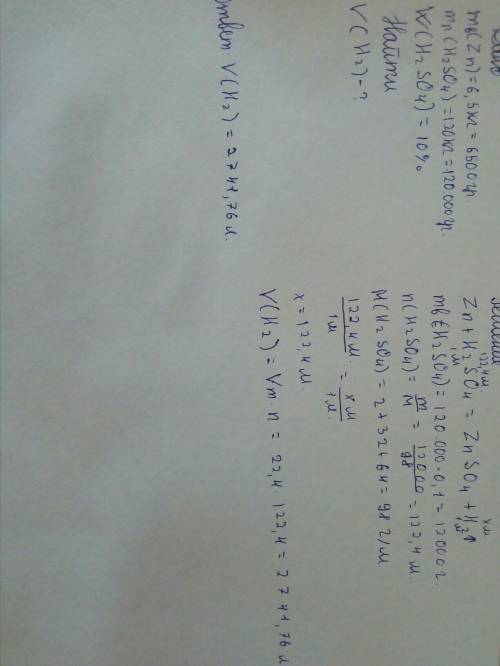 Дано
mв(Zn)=6,5кг=6500гр.
mп(H2SO4)=120кг=120.000гр.
W(H2SO4)=10%
Найти
V(H2)-?
Решение
122,4м. xм
Zn+H2SO4=ZnSO4+H2↑
1м 1м
mв(H2SO4)=120.000·0,1=12000г.
n(H2SO4)=m/M=12000/98=122,4м.
M(H2SO4)=2+32+64=98г/м
122,4м./1м=xм/1м.
x=122,4м.
V(H2)=Vm·n=22,4·122,4=2741,76л
Ответ V(H2)=2741,76л.